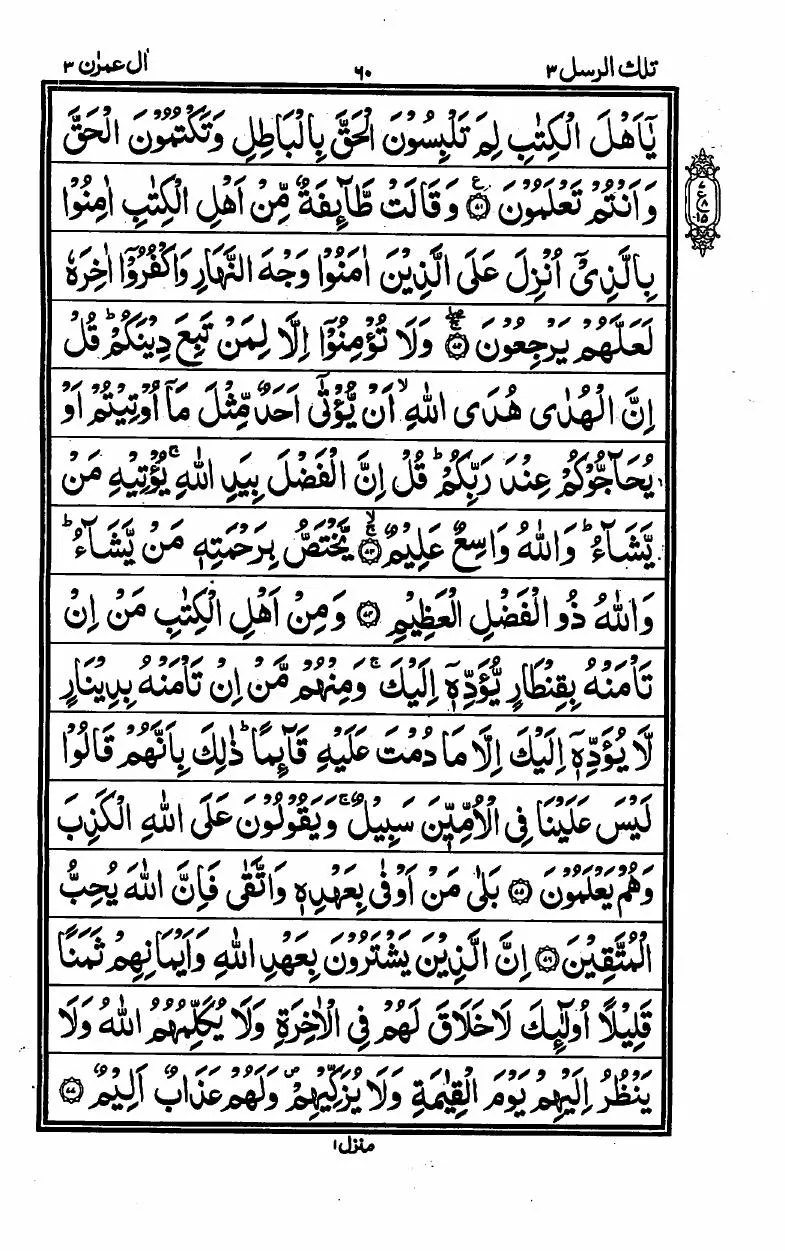 تلك الرسل ٣ ٦٠ اٰل عمرٰن ٣
يٰۤاَهْلَ الْكِتٰبِ لِمَ تَلْبِسُوْنَ الْحَقَّ بِالْبَاطِلِ وَتَكْتُمُوْنَ الْحَقَّ
وَاَنْتُمْ تَعْلَمُوْنَ ۝۷۱ ع وَقَالَتْ طَّآئِفَةٌ مِّنْ اَهْلِ الْكِتٰبِ اٰمِنُوْا
بِالَّذِيْۤ اُنْزِلَ عَلَى الَّذِيْنَ اٰمَنُوْا وَجْهَ النَّهَارِ وَاكْفُرُوْۤا اٰخِرَهٗ
لَعَلَّهُمْ يَرْجِعُوْنَ ۝۷۲ وَلَا تُؤْمِنُوْۤا اِلَّا لِمَنْ تَبِعَ دِيْنَكُمْ ؕ قُلْ
اِنَّ الْهُدٰى هُدَى اللّٰهِ ۙ اَنْ يُّؤْتٰۤى اَحَدٌ مِّثْلَ مَاۤ اُوْتِيْتُمْ اَوْ
يُحَآجُّوْكُمْ عِنْدَ رَبِّكُمْ ؕ قُلْ اِنَّ الْفَضْلَ بِيَدِ اللّٰهِ ۚ يُؤْتِيْهِ مَنْ
يَّشَآءُ ؕ وَاللّٰهُ وَاسِعٌ عَلِيْمٌ ۝۷۳ ۙۚ يَّخْتَصُّ بِرَحْمَتِهٖ مَنْ يَّشَآءُ ؕ
وَاللّٰهُ ذُو الْفَضْلِ الْعَظِيْمِ ۝۷۴ وَمِنْ اَهْلِ الْكِتٰبِ مَنْ اِنْ
تَاْمَنْهُ بِقِنْطَارٍ يُّؤَدِّهٖۤ اِلَيْكَ ۚ وَمِنْهُمْ مَّنْ اِنْ تَاْمَنْهُ بِدِيْنَارٍ
لَّا يُؤَدِّهٖۤ اِلَيْكَ اِلَّا مَا دُمْتَ عَلَيْهِ قَآئِمًا ؕ ذٰلِكَ بِاَنَّهُمْ قَالُوْا
لَيْسَ عَلَيْنَا فِي الْاُمِّيّٖنَ سَبِيْلٌ ۚ وَيَقُوْلُوْنَ عَلَى اللّٰهِ الْكَذِبَ
وَهُمْ يَعْلَمُوْنَ ۝۷۵ بَلٰى مَنْ اَوْفٰى بِعَهْدِهٖ وَاتَّقٰى فَاِنَّ اللّٰهَ يُحِبُّ
الْمُتَّقِيْنَ ۝۷۶ اِنَّ الَّذِيْنَ يَشْتَرُوْنَ بِعَهْدِ اللّٰهِ وَاَيْمَانِهِمْ ثَمَنًا
قَلِيْلًا اُولٰٓئِكَ لَا خَلَاقَ لَهُمْ فِي الْاٰخِرَةِ وَلَا يُكَلِّمُهُمُ اللّٰهُ وَلَا
يَنْظُرُ اِلَيْهِمْ يَوْمَ الْقِيٰمَةِ وَلَا يُزَكِّيْهِمْ ۪ وَلَهُمْ عَذَابٌ اَلِيْمٌ ۝۷۷
۷
ع ۸
۱۵
منزل ۱